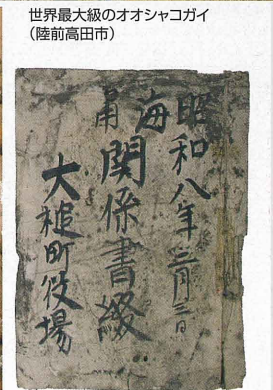 世界最大級のオオシャコガイ
（陸前高田市）
昭和八年三月三日
海嘯関係書綴
大槌町役場